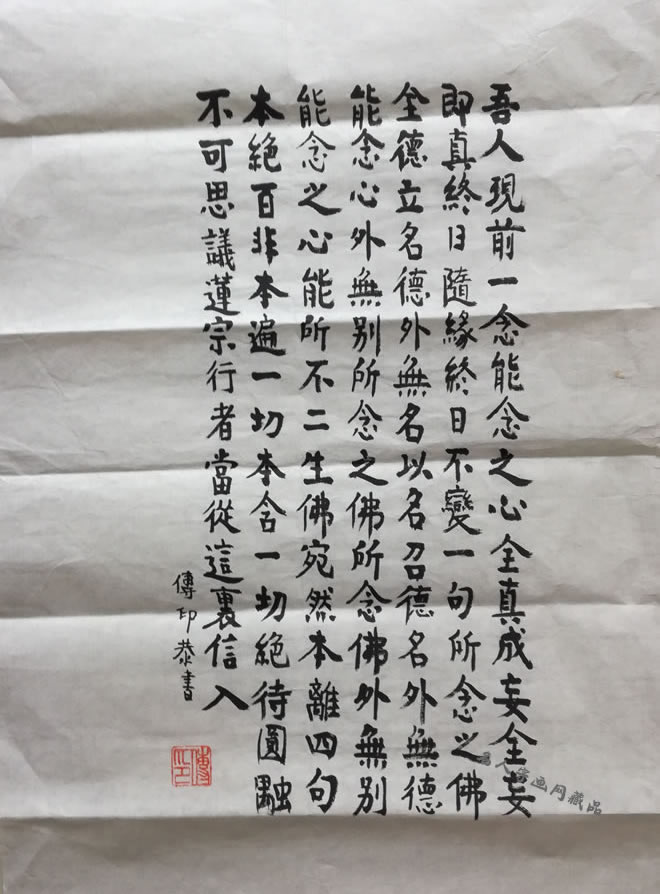 吾人現前一念能念之心全真成妄全妄
即真終日隨緣終日不變一句所念之佛
全德立名德外無名以名召德名外無德
能念心外無别所念之佛所念佛外無别
能念之心能所不二生佛宛然本離四句
本絕百非本遍一切本含一切絕待圓融
不可思議蓮宗行者當從這裏信入
傳印恭書
傳印
名人字画网藏品